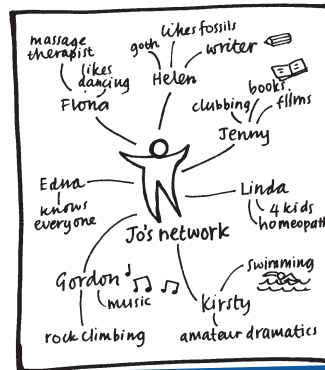 massage
therapist
likes
dancing
Fiona
goth
likes fossils
writer
Helen
books
clubbing
films
Jenny
Edna
knows
everyone
Linda
4 kids
homeopath
Jo's network
Gordon
music
rock climbing
swimming
Kirsty
amateur dramatics